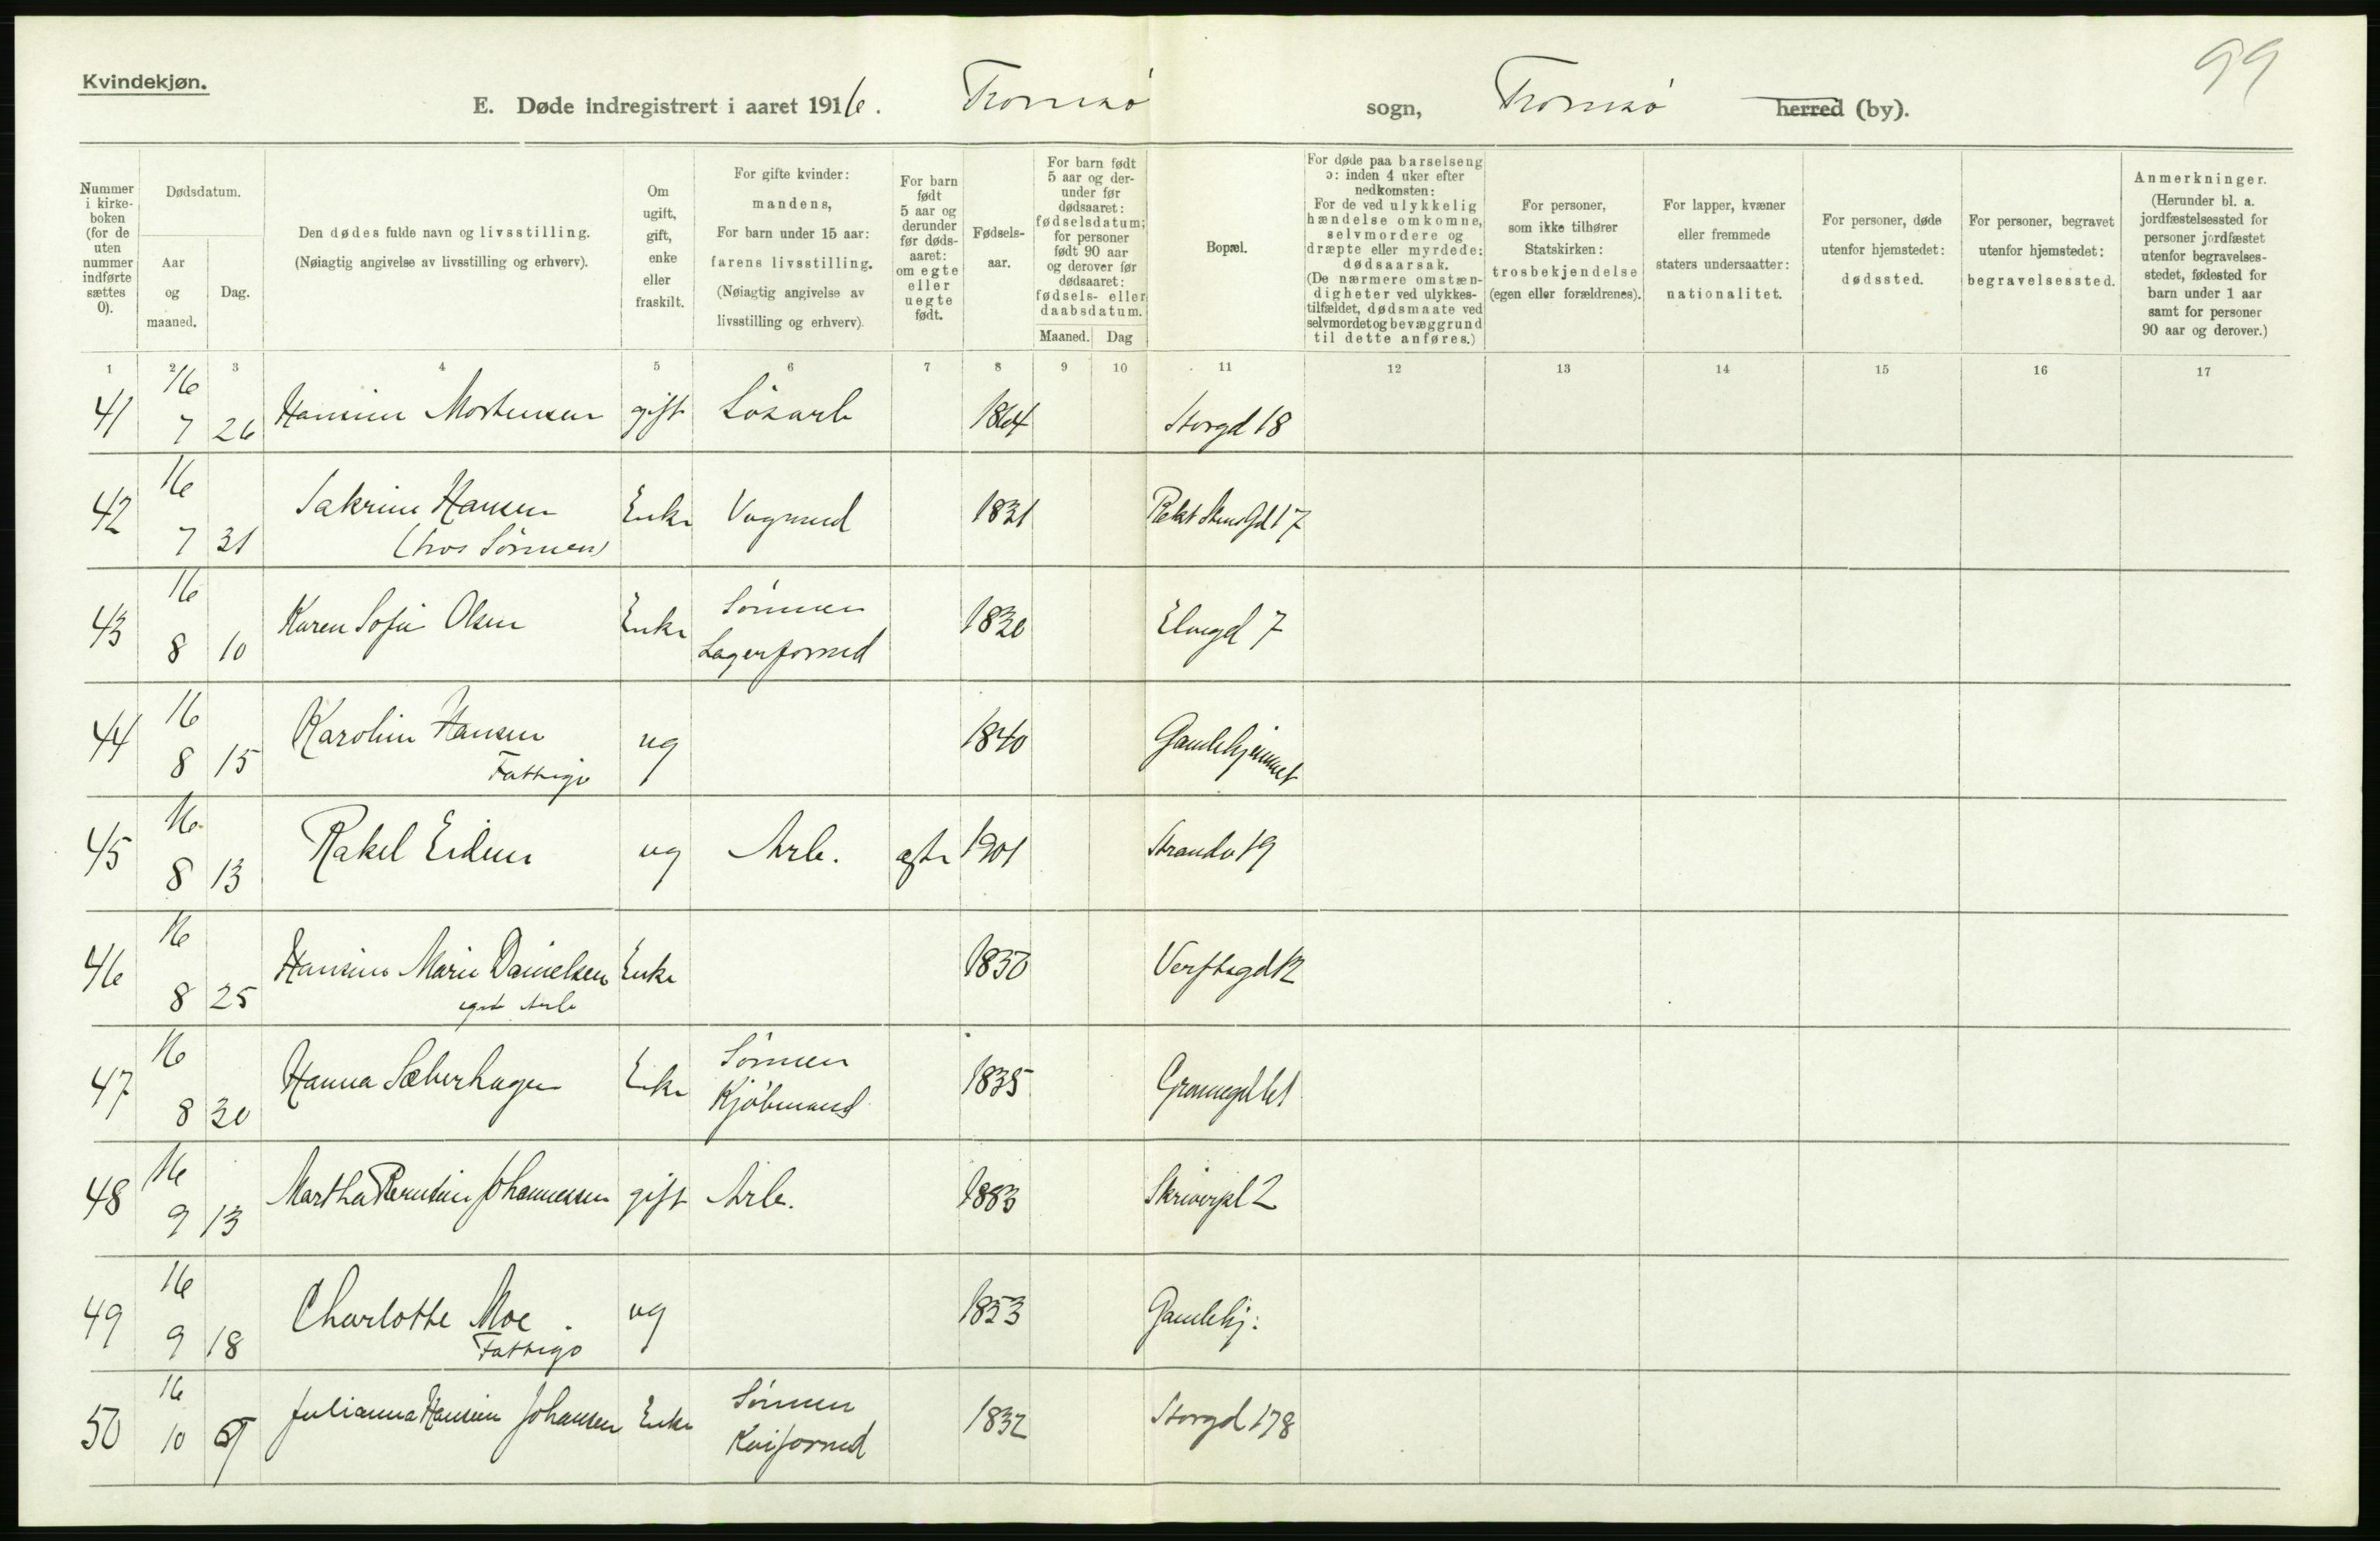 99
Kvindekjøn.
E. Døde indregistrert i aaret 1916. Tromsø sogn, Tromsø herred (by).
Nummer i kirkeboken (for de uten nummer indførte sættes 0).
Dødsdatum.
Aar og maaned.
Dag.
Den dødes fulde navn og livsstilling.
(Nøiagtig angivelse av livsstilling og erhverv).
Om ugift, gift, enke eller fraskilt.
For gifte kvinder: mandens,
For barn under 15 aar: farens livsstilling.
(Nøiagtig angivelse av livsstilling og erhverv).
For barn født 5 aar og derunder før dødsaaret: om egte eller uegte født.
Fødselsaar.
For barn født 5 aar og derunder før dødsaaret: fødselsdatum; for personer født 90 aar og derover før dødsaaret: fødsels- eller daabsdatum.
Maaned. Dag
Bopæl.
For døde paa barselseng ɔ: inden 4 uker efter nedkomsten:
For de ved ulykkelig hændelse omkomne, selvmordere og dræpte eller myrdede: dødsaarsak.
(De nærmere omstændigheter ved ulykkestilfældet, dødsmaate ved selvmordet og bevæggrund til dette anføres.)
For personer, som ikke tilhører Statskirken: trosbekjendelse (egen eller forældrenes).
For lapper, kvæner eller fremmede staters undersaatter: nationalitet.
For personer, døde utenfor hjemstedet: dødssted.
For personer, begravet utenfor hjemstedet: begravelsessted.
Anmerkninger.
(Herunder bl. a. jordfæstelsessted for personer jordfæstet utenfor begravelsesstedet, fødested for barn under 1 aar samt for personer 90 aar og derover.)
1 2 3 4 5 6 7 8 9 10 11 12 13 14 15 16 17
41 16 7 26 Hansine Mortensen gift Løsarb 1864 Storgd 18
42 16 7 31 Sakrine Hansen Enke Vognmd 1831 17
(hos Sønnen)
43 16 8 10 Karen Sofie Olsen Enke Sønnen 1830 Elvegd 7
Lagerformd
44 16 8 15 Karoline Hansen ug 1840 Gamlehjemmet
Fattigu
45 16 8 13 Rakel Eidum ug Arb. egte 1901 Strandv 19
46 16 8 25 Hansine Marie Danielsen Enke 1850 Verftsgd 12
47 16 8 30 Hanna Sæberhagen Enke Sønnen 1835
Kjøbmand
48 16 9 13 Martha Johannessen gift Arb. 1883 Skriverpl 2
49 16 9 18 Charlotte Moe ug 1853 Gamlehj:
Fattigu
50 16 10 Julianna Hansine Johansen Enke Sønnen 1832 Storgd 178